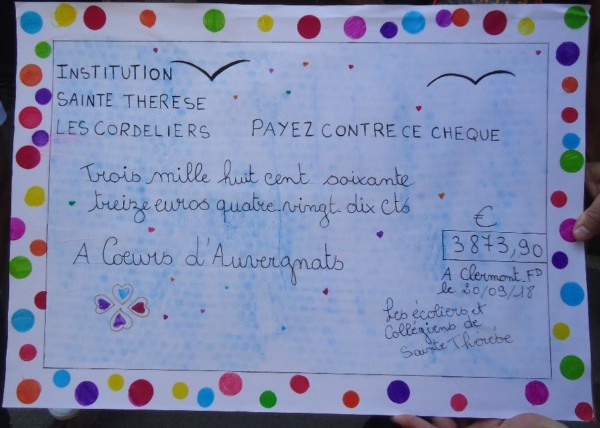 INSTITUTION
SAINTE THERESE
LES CORDELIERS PAYEZ CONTRE CE CHEQUE
Trois mille huit cent soixante
treize euros quatre vingt dix cts
€
3873,90
A Coeurs d'Auvergnats
A Clermont.FD
le 20/09/18
Les écoliers et
Collégiens de
Sainte Thérèse